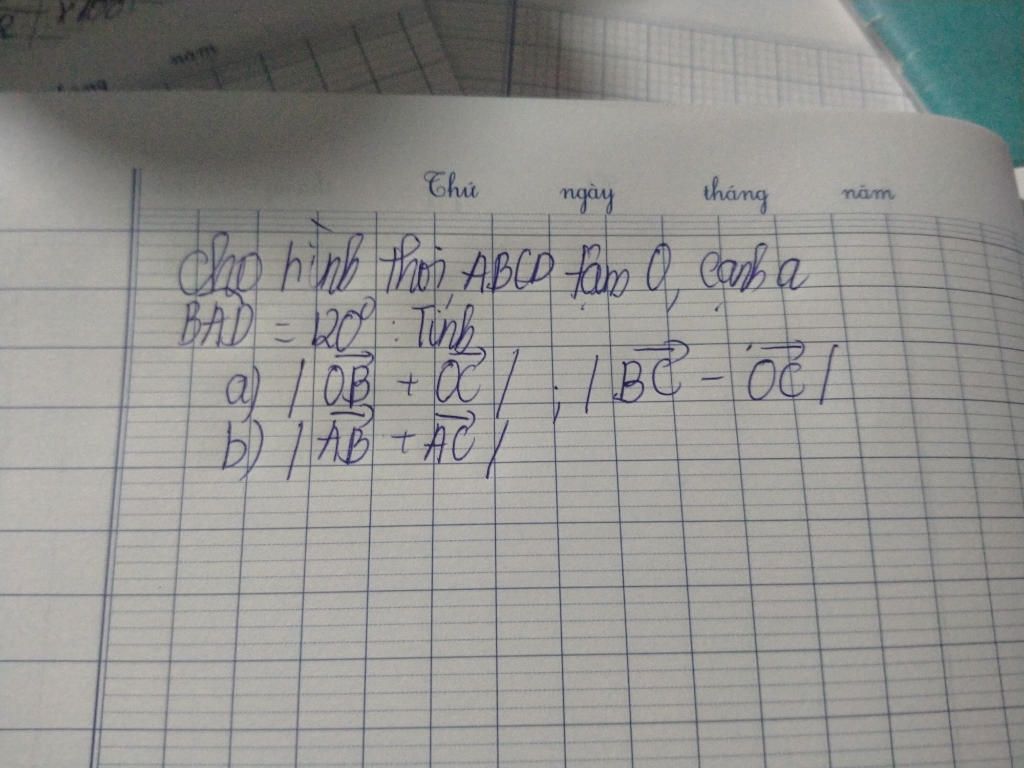 năm
Thứ ngày tháng năm
Cho hình thoi ABCD tâm O, cạnh a
BAD = 120° : Tính
a) | \overrightarrow{OB} + \overrightarrow{OC} | ; | \overrightarrow{BC} - \overrightarrow{OC} |
b) | \overrightarrow{AB} + \overrightarrow{AC} |